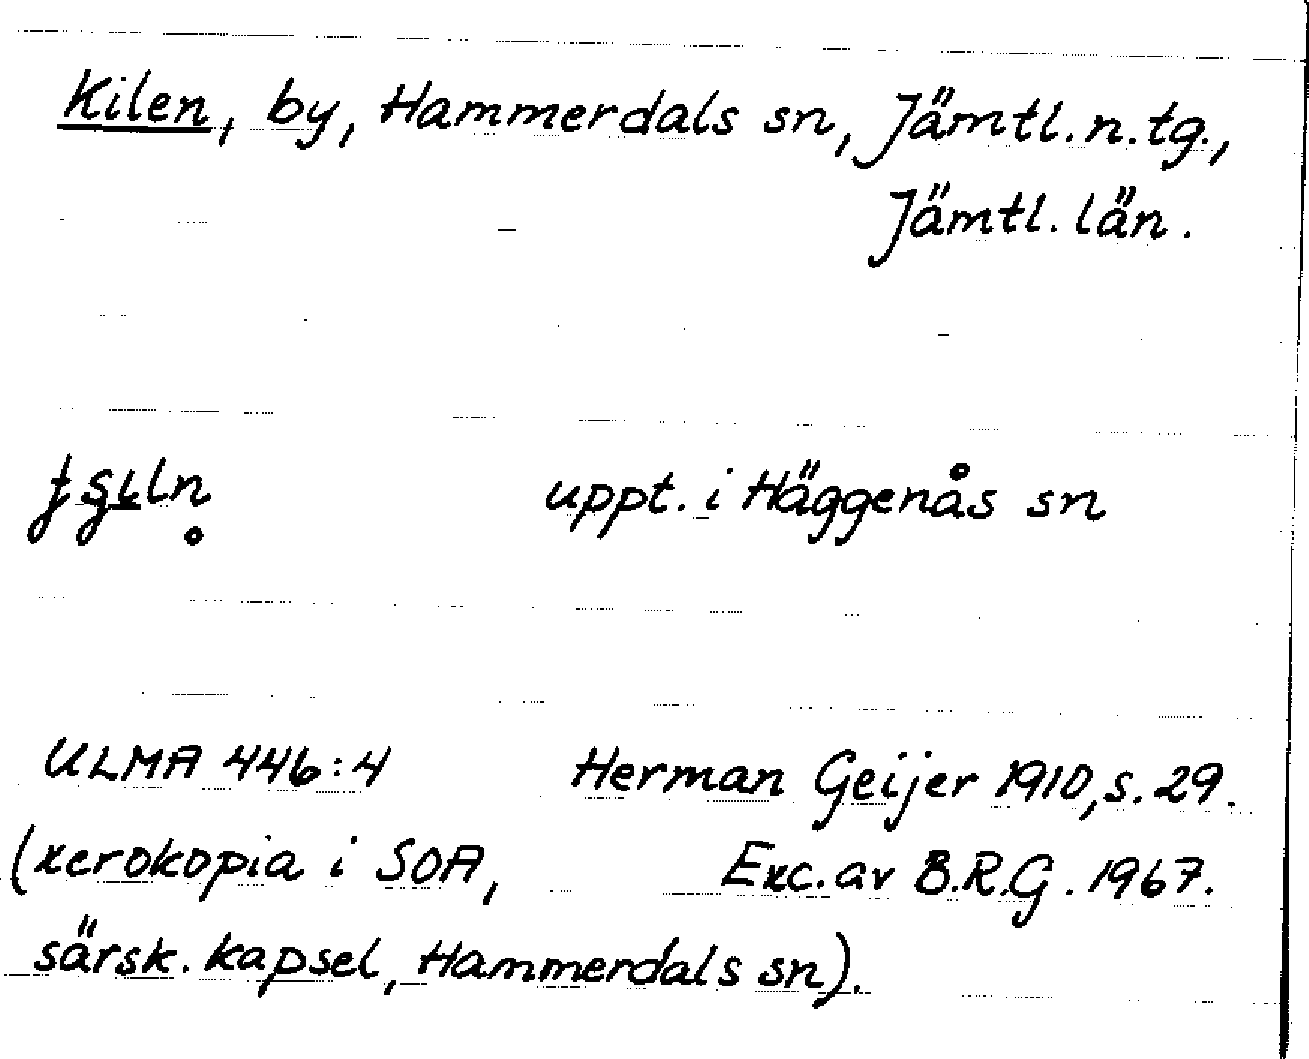 Kilen, by, Hammerdals sn, Jämtl. n. tg.,
Jämtl. län.
uppt. i Häggenås sn
ULMA 446:4 Herman Geijer 1910, s. 29.
(xerokopia i SOA, Exc. av B.R.G. 1967.
särsk. kapsel, Hammerdals sn).